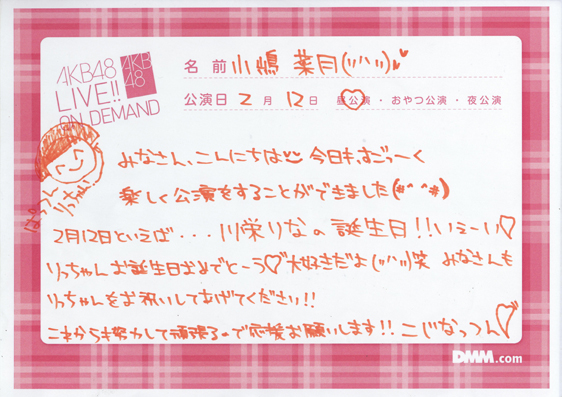 AKB48
LIVE!!
ON DEMAND
AKB
48
名前 小嶋 菜月(ﾂハﾂ)
公演日 2月12日 昼公演・おやつ公演・夜公演
みなさん、こんにちは 今日も、すごーく
楽しく公演をすることができました(*^^*)
ぱっつん
りっちゃん!
2月12日といえば...川栄りなの誕生日!!いぇーい♡
りっちゃんお誕生日おめでとーう♡大好きだよ(ﾂハﾂ)笑 みなさんも
りっちゃんをお祝いしてあげてください!!
これからも努力して頑張るので応援お願いします!! こじなっつん♡
DMM.com